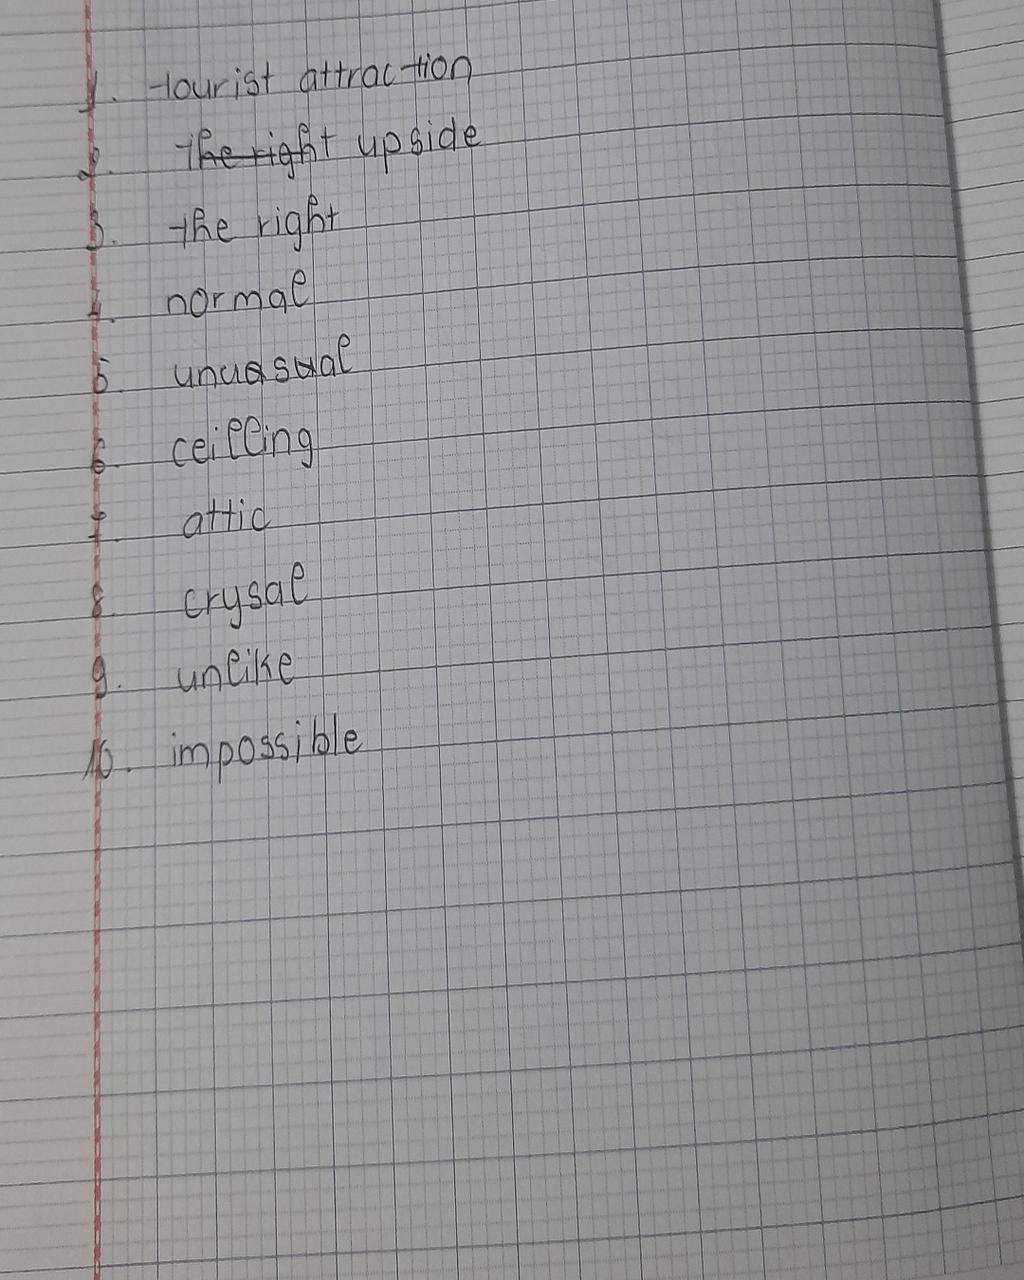 1. tourist attraction
2. the right upside
3. the right
4. normal
5. unuasual
6. ceilling
7. attic
8. crysal
9. unlike
10. impossible